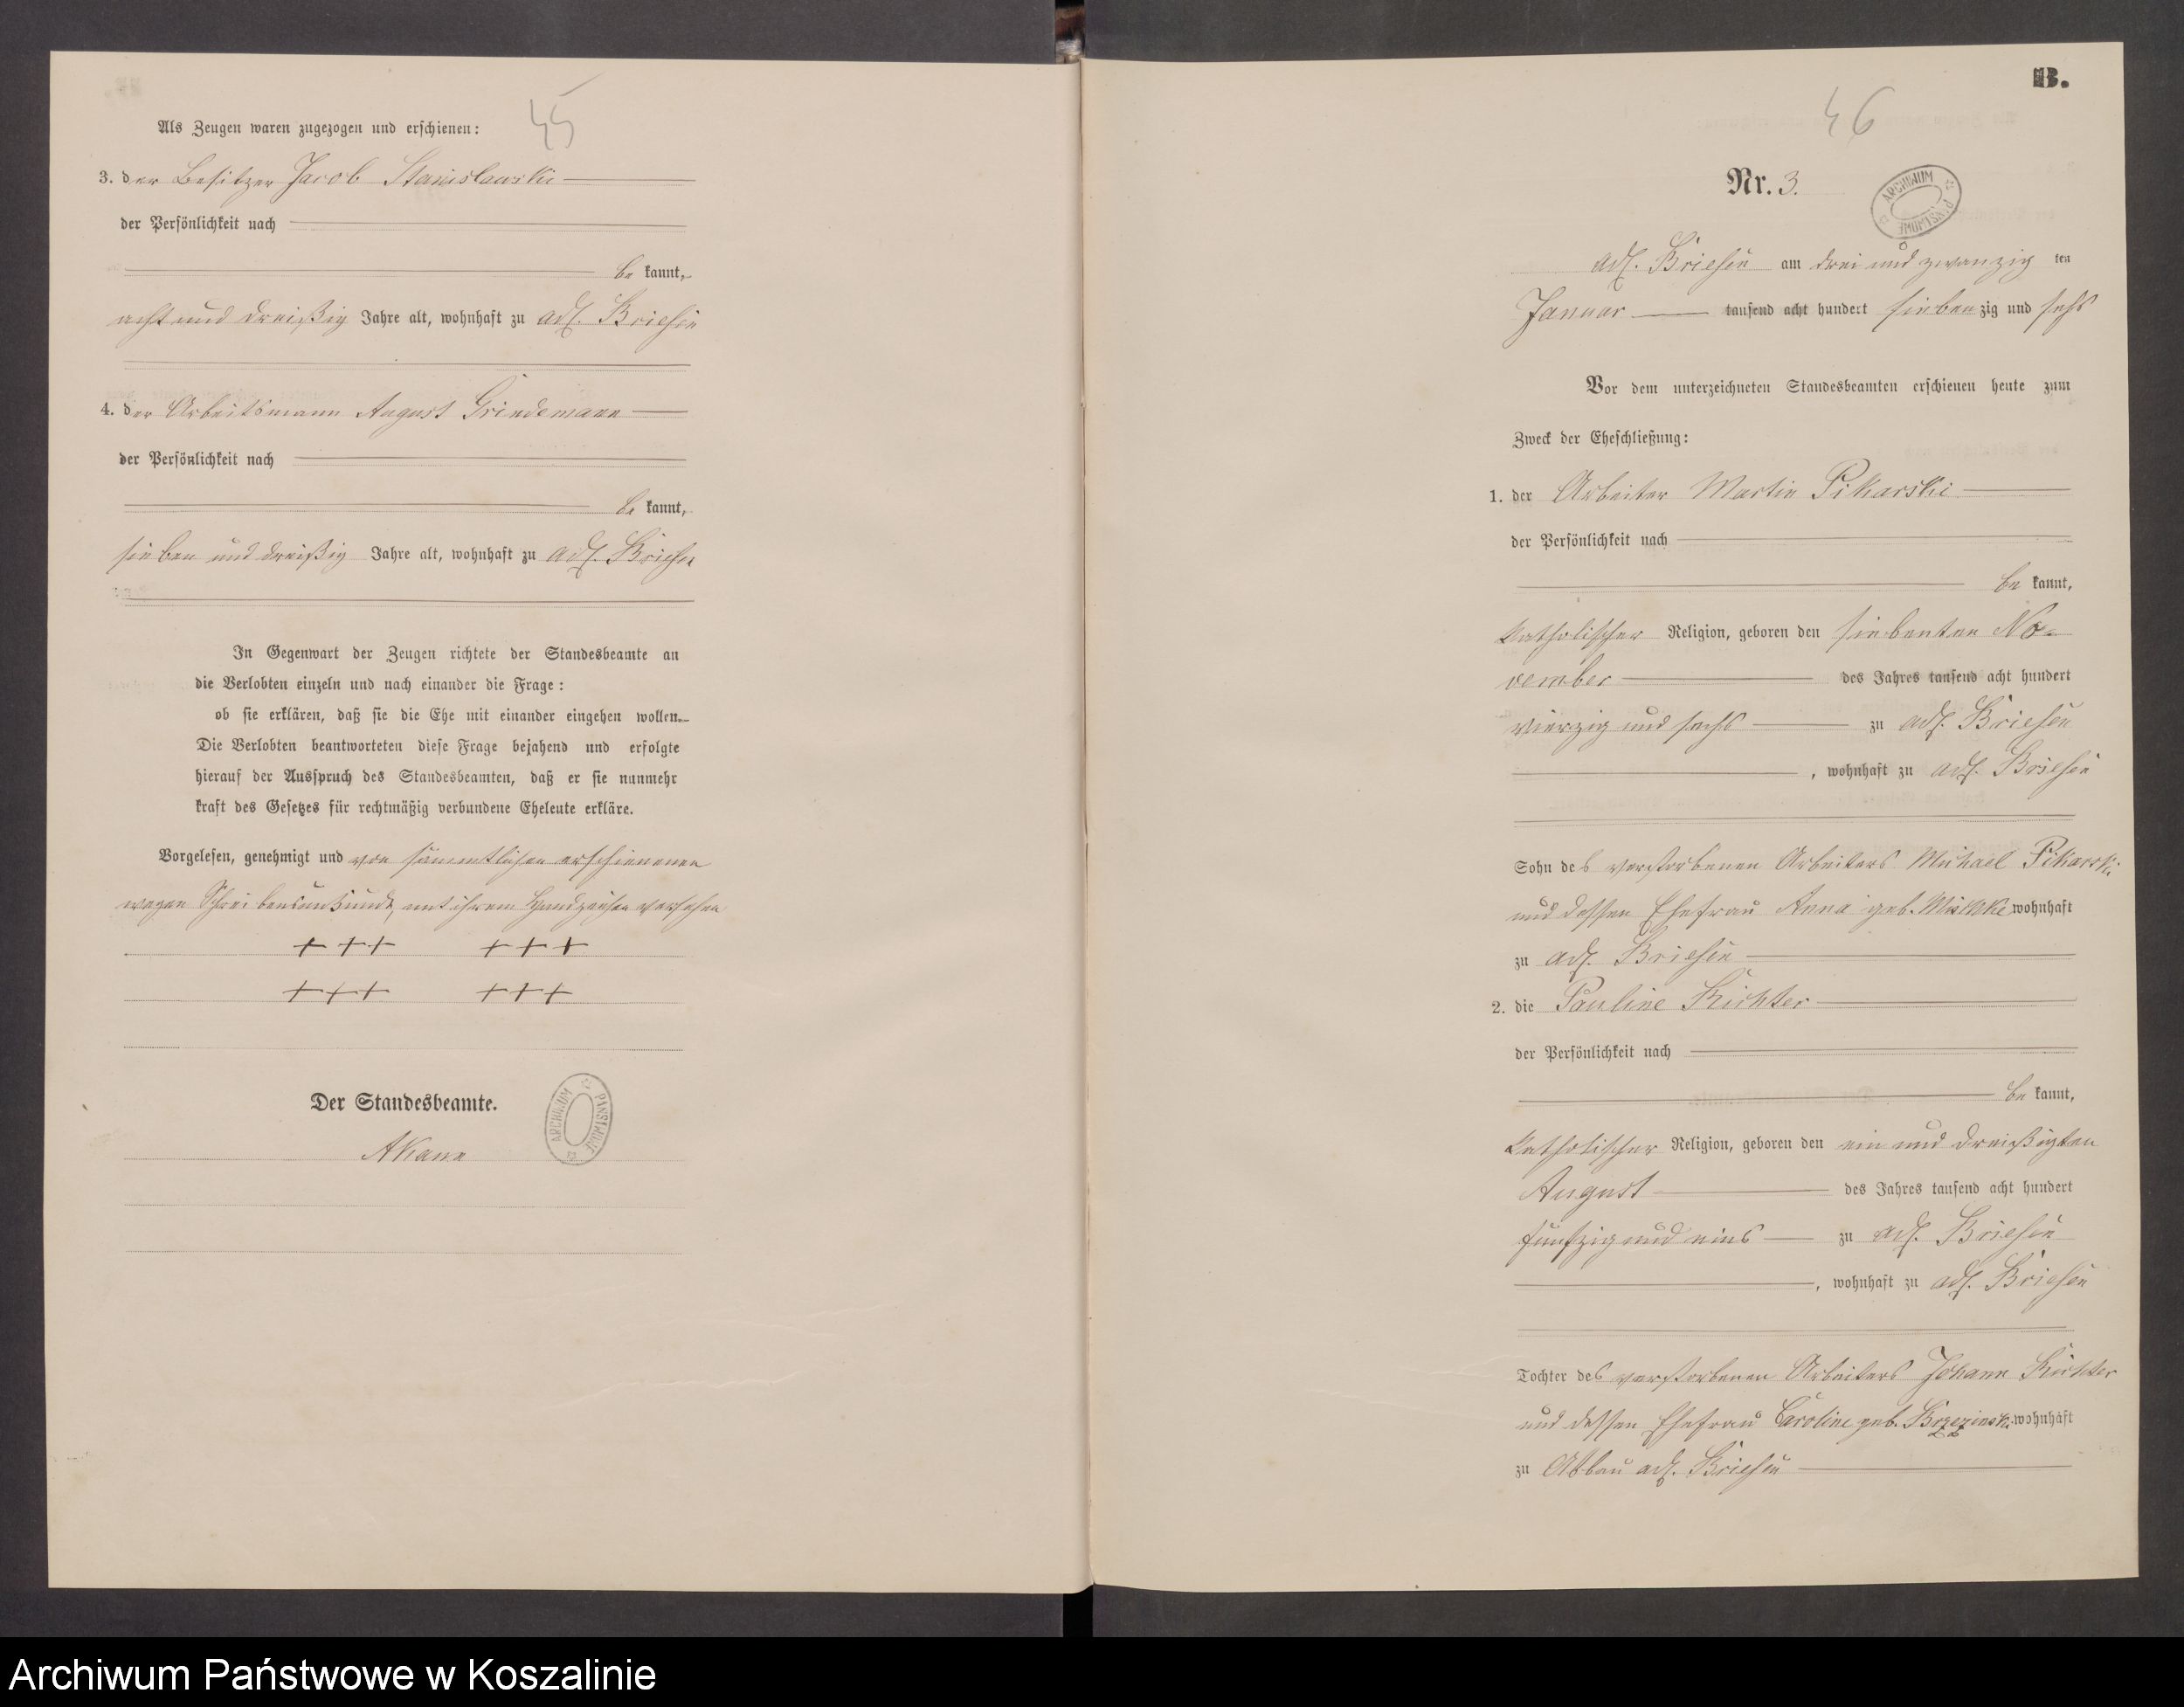 45
Als Zeugen waren zugezogen und erschienen:
3. der Besitzer Jacob Stanislawski
der Persönlichkeit nach
be kannt,
acht und dreißig Jahre alt, wohnhaft zu adl. Briesen
4. der Arbeitsmann August Grindemann
der Persönlichkeit nach
be kannt,
sieben und dreißig Jahre alt, wohnhaft zu adl. Briesen
In Gegenwart der Zeugen richtete der Standesbeamte an
die Verlobten einzeln und nach einander die Frage:
ob sie erklären, daß sie die Ehe mit einander eingehen wollen.
Die Verlobten beantworteten diese Frage bejahend und erfolgte
hierauf der Ausspruch des Standesbeamten, daß er sie nunmehr
kraft des Gesetzes für rechtmäßig verbundene Eheleute erkläre.
Vorgelesen, genehmigt und von sämmtlichen erschienenen
wegen Schreibensunkunde, mit ihrem Handzeichen versehen
+++ +++
+++ +++
Der Standesbeamte.
ARCHIWUM PAŃSTWOWE
B.
46
Nr. 3.
ARCHIWUM PAŃSTWOWE
adl. Briesen am drei und zwanzig ten
Januar tausend acht hundert siebenzig und sechs
Vor dem unterzeichneten Standesbeamten erschienen heute zum
Zweck der Eheschließung:
1. der Arbeiter Martin Pikarski
der Persönlichkeit nach
be kannt,
katholischer Religion, geboren den siebenten No-
vember des Jahres tausend acht hundert
vierzig und sechs zu adl. Briesen
, wohnhaft zu adl. Briesen
Sohn des verstorbenen Arbeiters Michael Pikarski
und dessen Ehefrau Anna geb. wohnhaft
zu adl. Briesen
2. die Pauline Richter
der Persönlichkeit nach
be kannt,
katholischer Religion, geboren den ein und dreißigten
August des Jahres tausend acht hundert
funfzig und eins zu adl. Briesen
, wohnhaft zu adl. Briesen
Tochter des verstorbenen Arbeiters Johann Richter
und dessen Ehefrau Caroline geb. Brzezinski wohnhaft
zu Abbau adl. Briesen
Archiwum Państwowe w Koszalinie